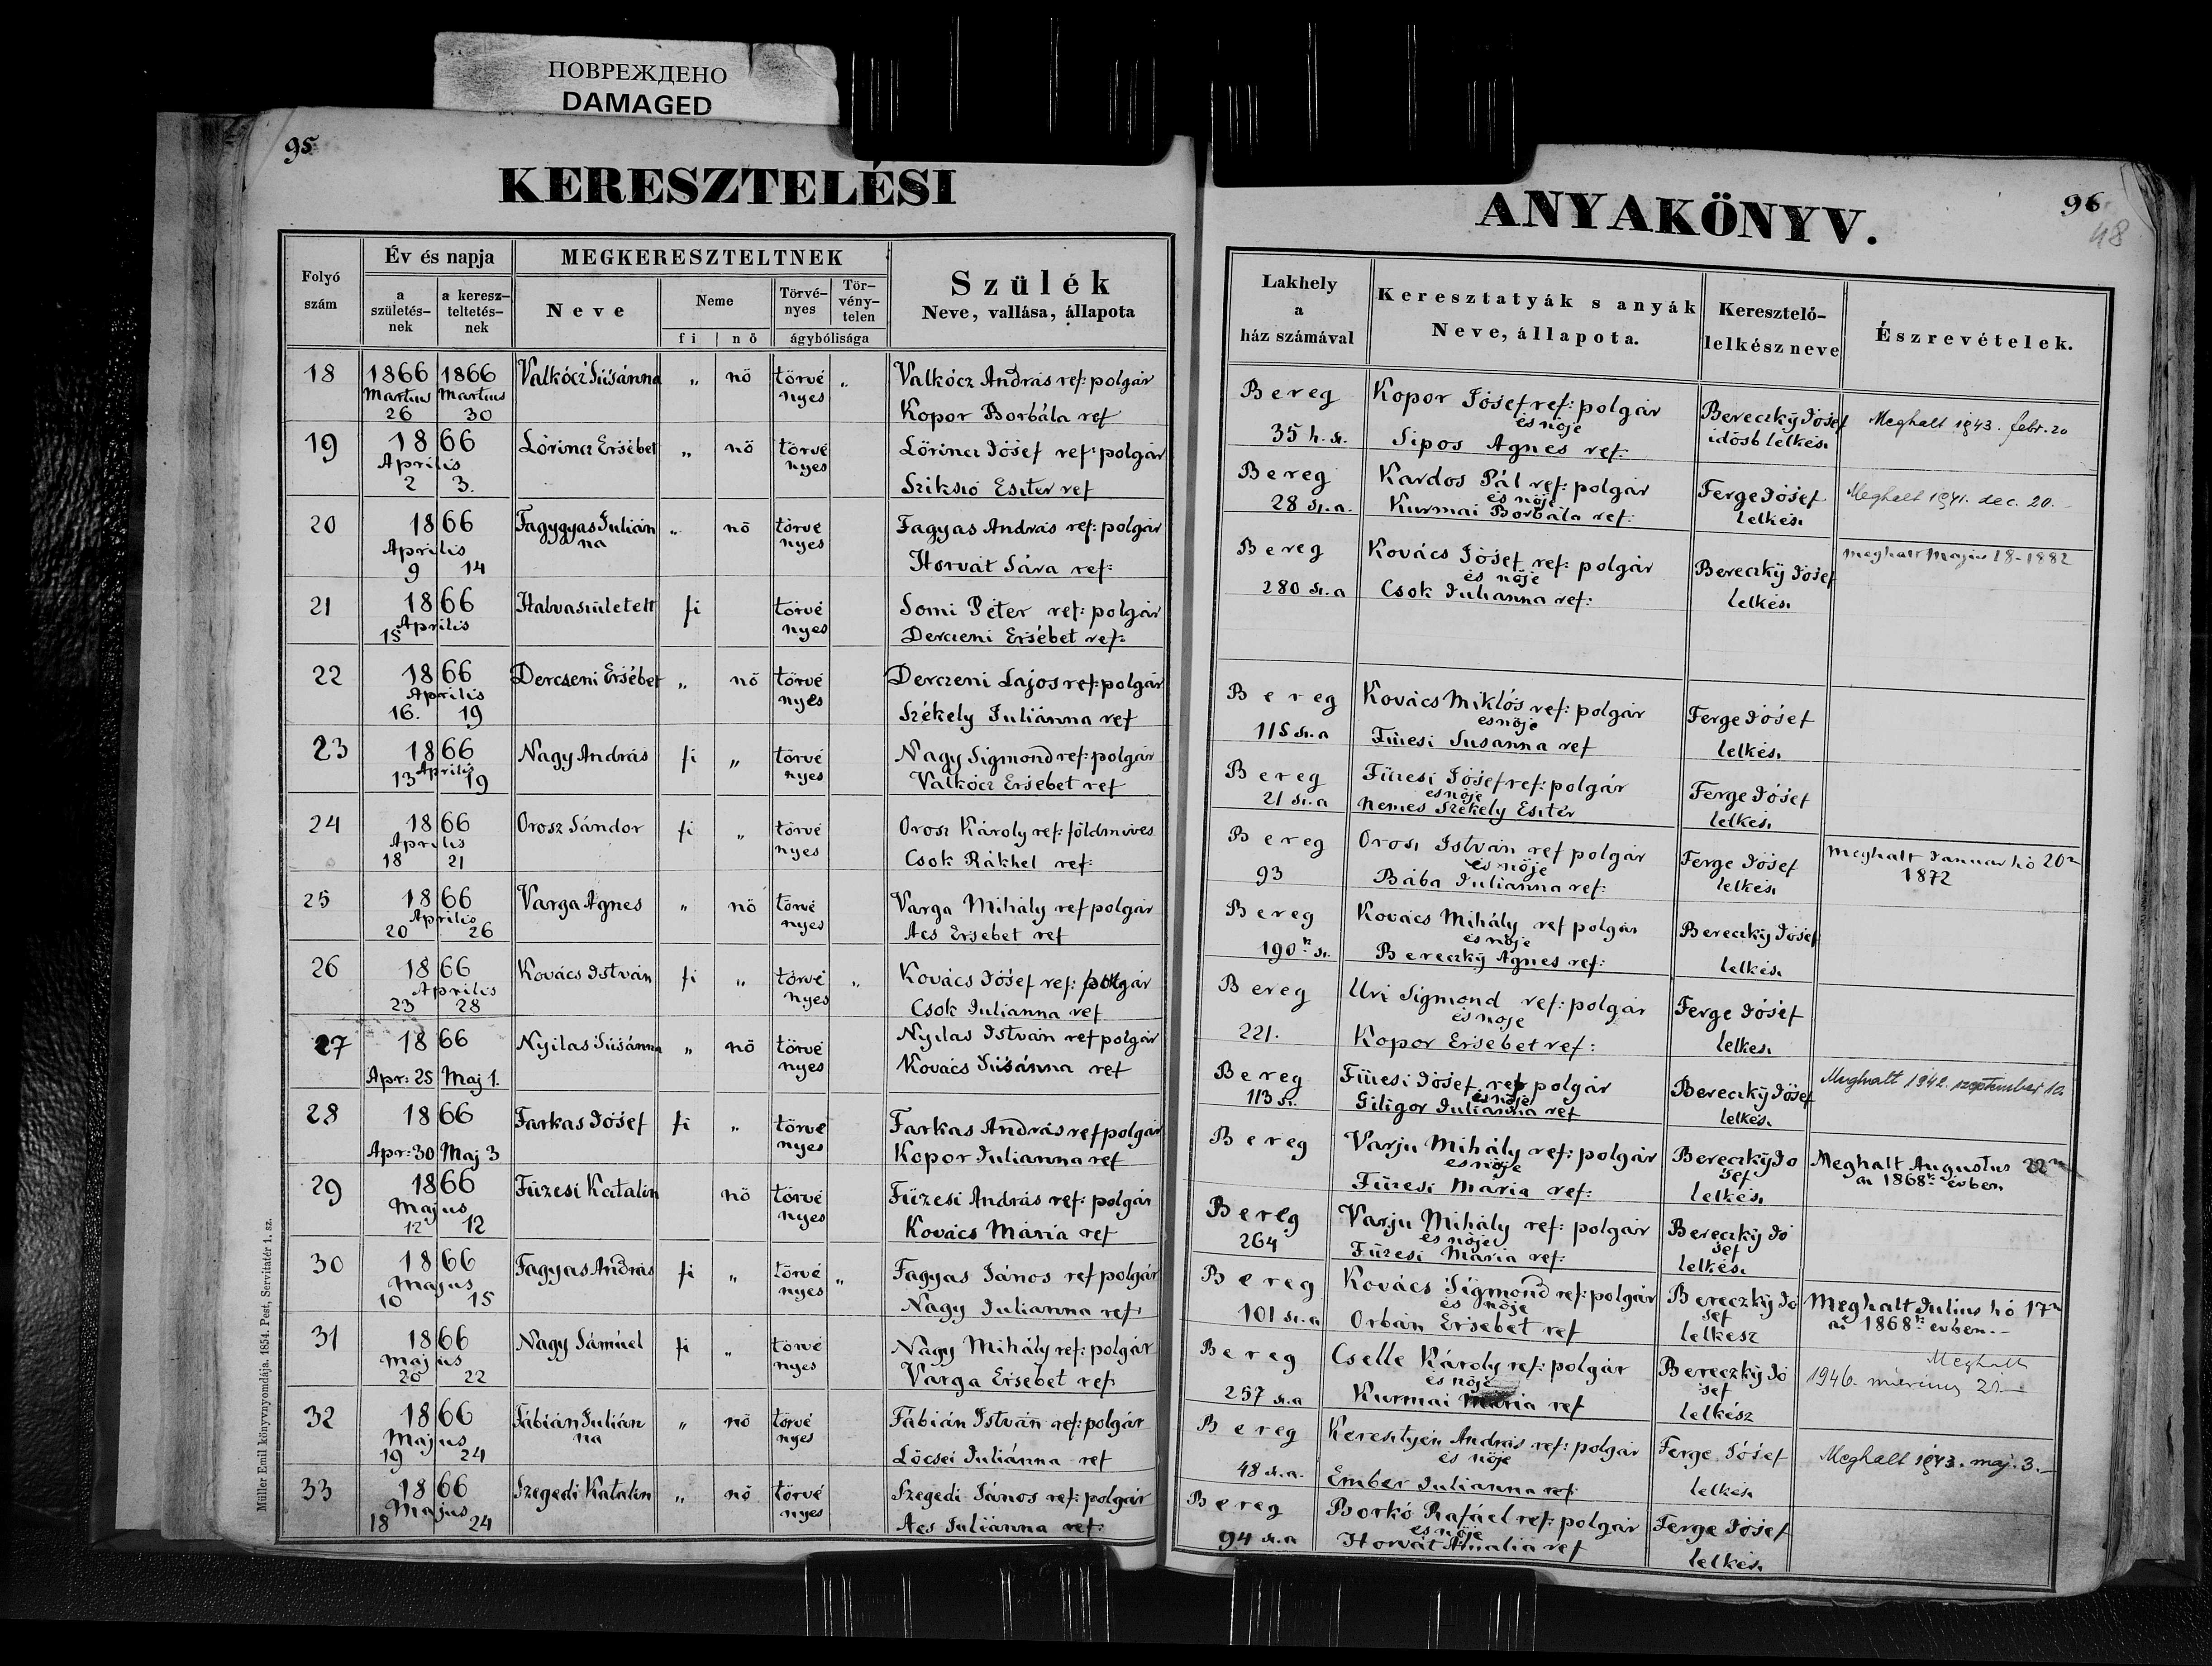 ПОВРЕЖДЕНО
DAMAGED
95
KERESZTELÉSI
Folyó szám
Év és napja
a születés-nek
a keresz-teltetés-nek
MEGKERESZTELTNEK
Neve
Neme
fi
nő
Törvé-nyes
Tör-vény-telen
ágybólisága
Szülék
Neve, vallása, állapota
18
1866 1866
Martius Martius
26 30
Valkócz Súsánna
„ nő törvé „
nyes
Valkócz András ref: polgár
Kopor Borbála ref
19
1866
Aprilis
2 3.
Lőrincz Ersébet
„ nő törvé
nyes
Lőrincz Jósef ref: polgár
Szikszó Eszter ref
20
1866
Aprilis
9 14
Fagygyas Julián
na
„ nő törvé
nyes
Fagyas András ref: polgár
Horvát Sára ref:
21
1866
Aprilis
15
Halvaszületett
fi törvé
nyes
Somi Péter ref: polgár
Derczeni Ersébet ref:
22
1866
Aprilis
16. 19
Dercseni Ersébet
„ nő törvé
nyes
Derczeni Lajos ref: polgár
Székely Juliánna ref
23
1866
Aprilis
13 19
Nagy András
fi „ törvé
nyes
Nagy Sigmond ref: polgár
Valkócz Ersebet ref
24
1866
Aprilis
18 21
Orosz Sándor
fi „ törvé
nyes
Orosz Károly ref: földmives
Csok Rákhel ref:
25
1866
Aprilis
20 26
Varga Agnes
„ nő törvé
nyes
Varga Mihály ref polgár
Acs Ersebet ref
26
1866
Aprilis
23 28
Kovács István
fi „ törvé „
nyes
Kovács Jósef ref: polgár
Csok Julianna ref
27
1866
Apr: 25 Maj 1.
Nyilas Súsánna
„ nő törvé
nyes
Nyilas István ref polgár
Kovács Súsánna ref
28
1866
Apr: 30 Maj 3
Farkas Jósef
fi „ törvé
nyes
Farkas András ref polgár
Kopor Julianna ref
29
1866
Majus
12 12
Füzesi Katalin
nő törvé
nyes
Füzesi András ref: polgár
Kovács Mária ref
30
1866
Majus
10 15
Fagyas András
fi „ törvé „
nyes
Fagyas János ref polgár
Nagy Julianna ref:
31
1866
Majus
20 22
Nagy Sámúel
fi „ törvé
nyes
Nagy Mihály ref: polgár
Varga Ersebet ref
32
1866
Majus
19 24
Fábián Julián
na
„ nő törvé
nyes
Fábián István ref: polgár
Lőcsei Juliánna ref
33
1866
Majus
18 24
Szegedi Katalin
„ nő törvé
nyes
Szegedi János ref: polgár
Acs Juliánna ref:
Müller Emil könyvnyomdája. 1854. Pest, Servitatér 1. sz.
96
48
ANYAKÖNYV.
Lakhely a ház számával
Keresztatyák s anyák
Neve, állapota.
Keresztelő-
lelkész neve
Észrevételek.
Bereg
35 h. sz.
Kopor Jósef ref: polgár
és nője
Sipos Agnes ref.
Bereczky Jósef
idősb lelkész
Meghalt 1943. febr. 20
Bereg
28 sz. a.
Kardos Pál ref: polgár
és nője
Kurmai Borbála ref:
Ferge Jósef
lelkész
Meghalt 1941. dec. 20.
Bereg
280 sz. a
Kovács Jósef ref: polgár
és nője
Csok Julianna ref:
Bereczky Jósef
lelkész
meghalt Majus 18-1882
Bereg
115 sz. a
Kovács Miklós ref: polgár
és nője
Füzesi Susanna ref
Ferge Jósef
lelkész
Bereg
21 sz. a
Füzesi Jósef ref: polgár
és nője
nemes Székely Eszter
Ferge Jósef
lelkész
Bereg
93
Orosz István ref polgár
és nője
Bába Julianna ref:
Ferge Jósef
lelkész
Meghalt Januar hó 20n
1872
Bereg
190k sz.
Kovács Mihály ref polgár
és nője
Bereczky Agnes ref:
Bereczky Jósef
lelkész
Bereg
221.
Uri Sigmond ref: polgár
és nője
Kopor Ersebet ref:
Ferge Jósef
lelkész
Bereg
113 sz.
Füzesi Jósef ref polgár
és nője
Giligor Julianna ref
Bereczky Jósef
lelkész
Meghalt 1942. szeptember 10.
Bereg
Varju Mihály ref: polgár
és nője
Füzesi Maria ref:
Bereczky Jó
sef
lelkész
Meghalt Augustus 22n
az 1868k evben
Bereg
264
Varju Mihály ref: polgár
és nője
Füzesi Maria ref:
Bereczky Jó
sef
lelkész
Bereg
101 sz. a
Kovács Sigmond ref: polgár
és nője
Orbán Ersebet ref
Bereczky Jó
sef
lelkesz
Meghalt Julius hó 17n
az 1868k evben.
Bereg
257 sz. a
Cselle Károly ref: polgár
és nője
Kurmai Maria ref
Bereczky Jó
sef
lelkész
Meghalt
1946. március 21.
Bereg
48 sz. a.
Keresztyén András ref: polgár
és nője
Ember Julianna ref:
Ferge Jósef
lelkész
Meghalt 1943. maj. 3.
Bereg
94 sz. a
Borkó Rafáel ref: polgár
és nője
Horvát Amalia ref
Ferge Jósef
lelkész